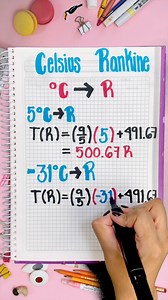 Celsius Rankine
°C → R
5°C → R
T(R) = (9/5)(5) + 491.67
= 500.67 R
-31°C → R
T(R) = (9/5)(-31) + 491.67